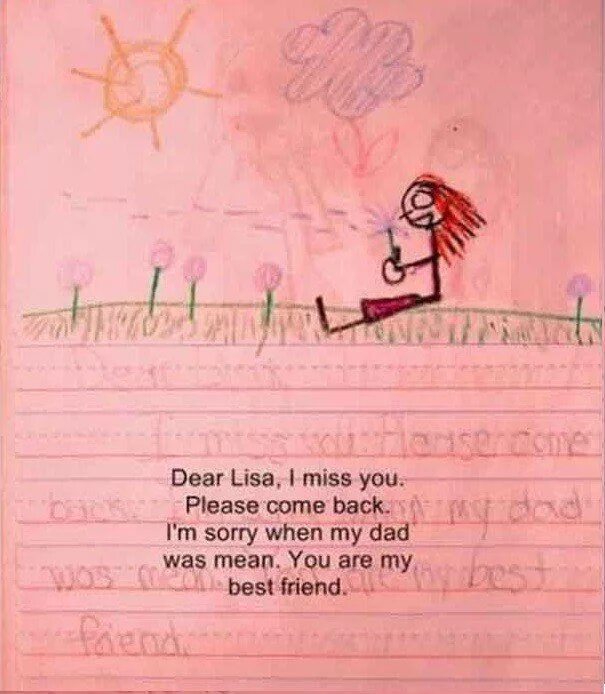 Dear Lisa, I miss you.
Please come back.
I'm sorry when my dad
was mean. You are my
best friend.
I miss you Please come
back. my dad
was mean. are my best
friend.